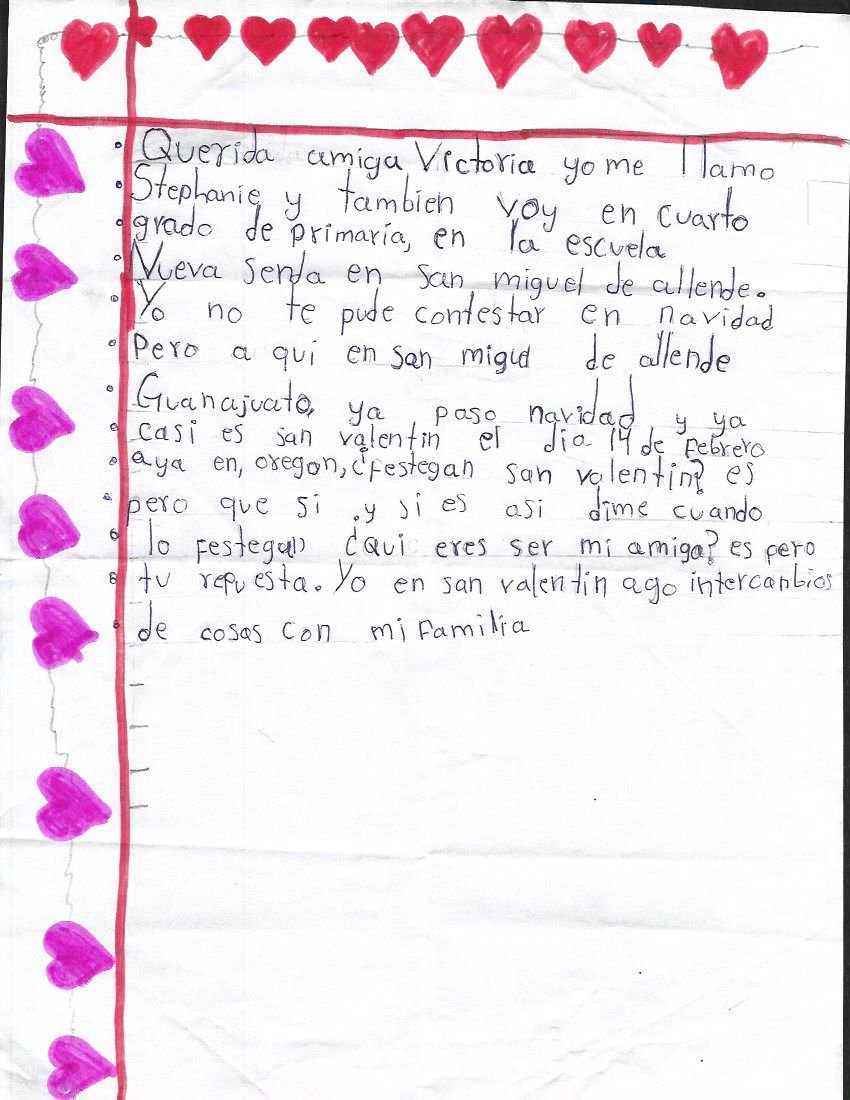 Querida amiga Victoria yo me llamo
Stephanie y tambien voy en cuarto
grado de primaria, en la escuela
Nueva senda en san miguel de allende.
Yo no te pude contestar en navidad
Pero a qui en san migul de allende
Guanajuato, ya paso navidad y ya
casi es san valentin el dia 14 de Febrero
aya en, oregon, ¿Festegan san valentin? es
pero que si .y si es asi dime cuando
lo Festegan ¿Qui eres ser mi amiga? es pero
tu repuesta. Yo en san valentin ago intercanbios
de cosas con mi Familia